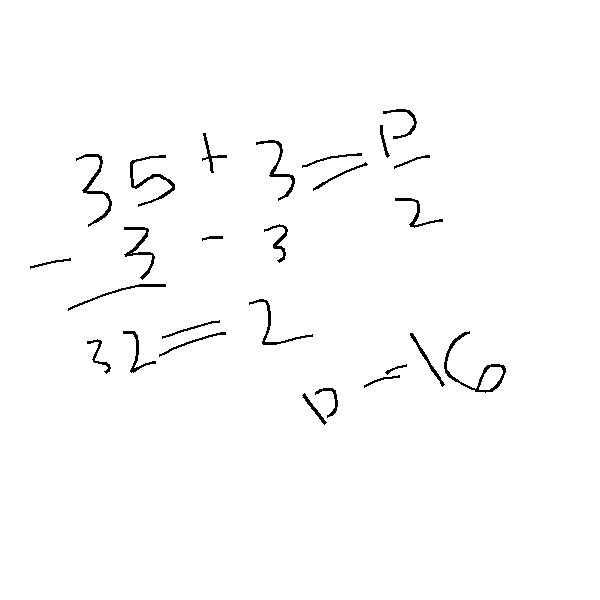 35 + 3 = p/2
- 3 - 3
32 = 2
p = 16